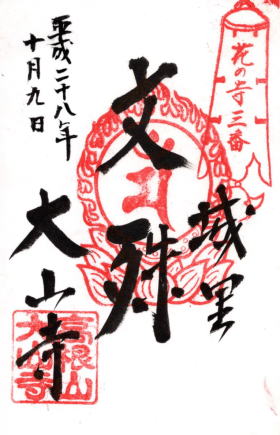 花の寺三番
城里
文殊
大山寺
平成二十八年
十月九日
高根山
大山寺